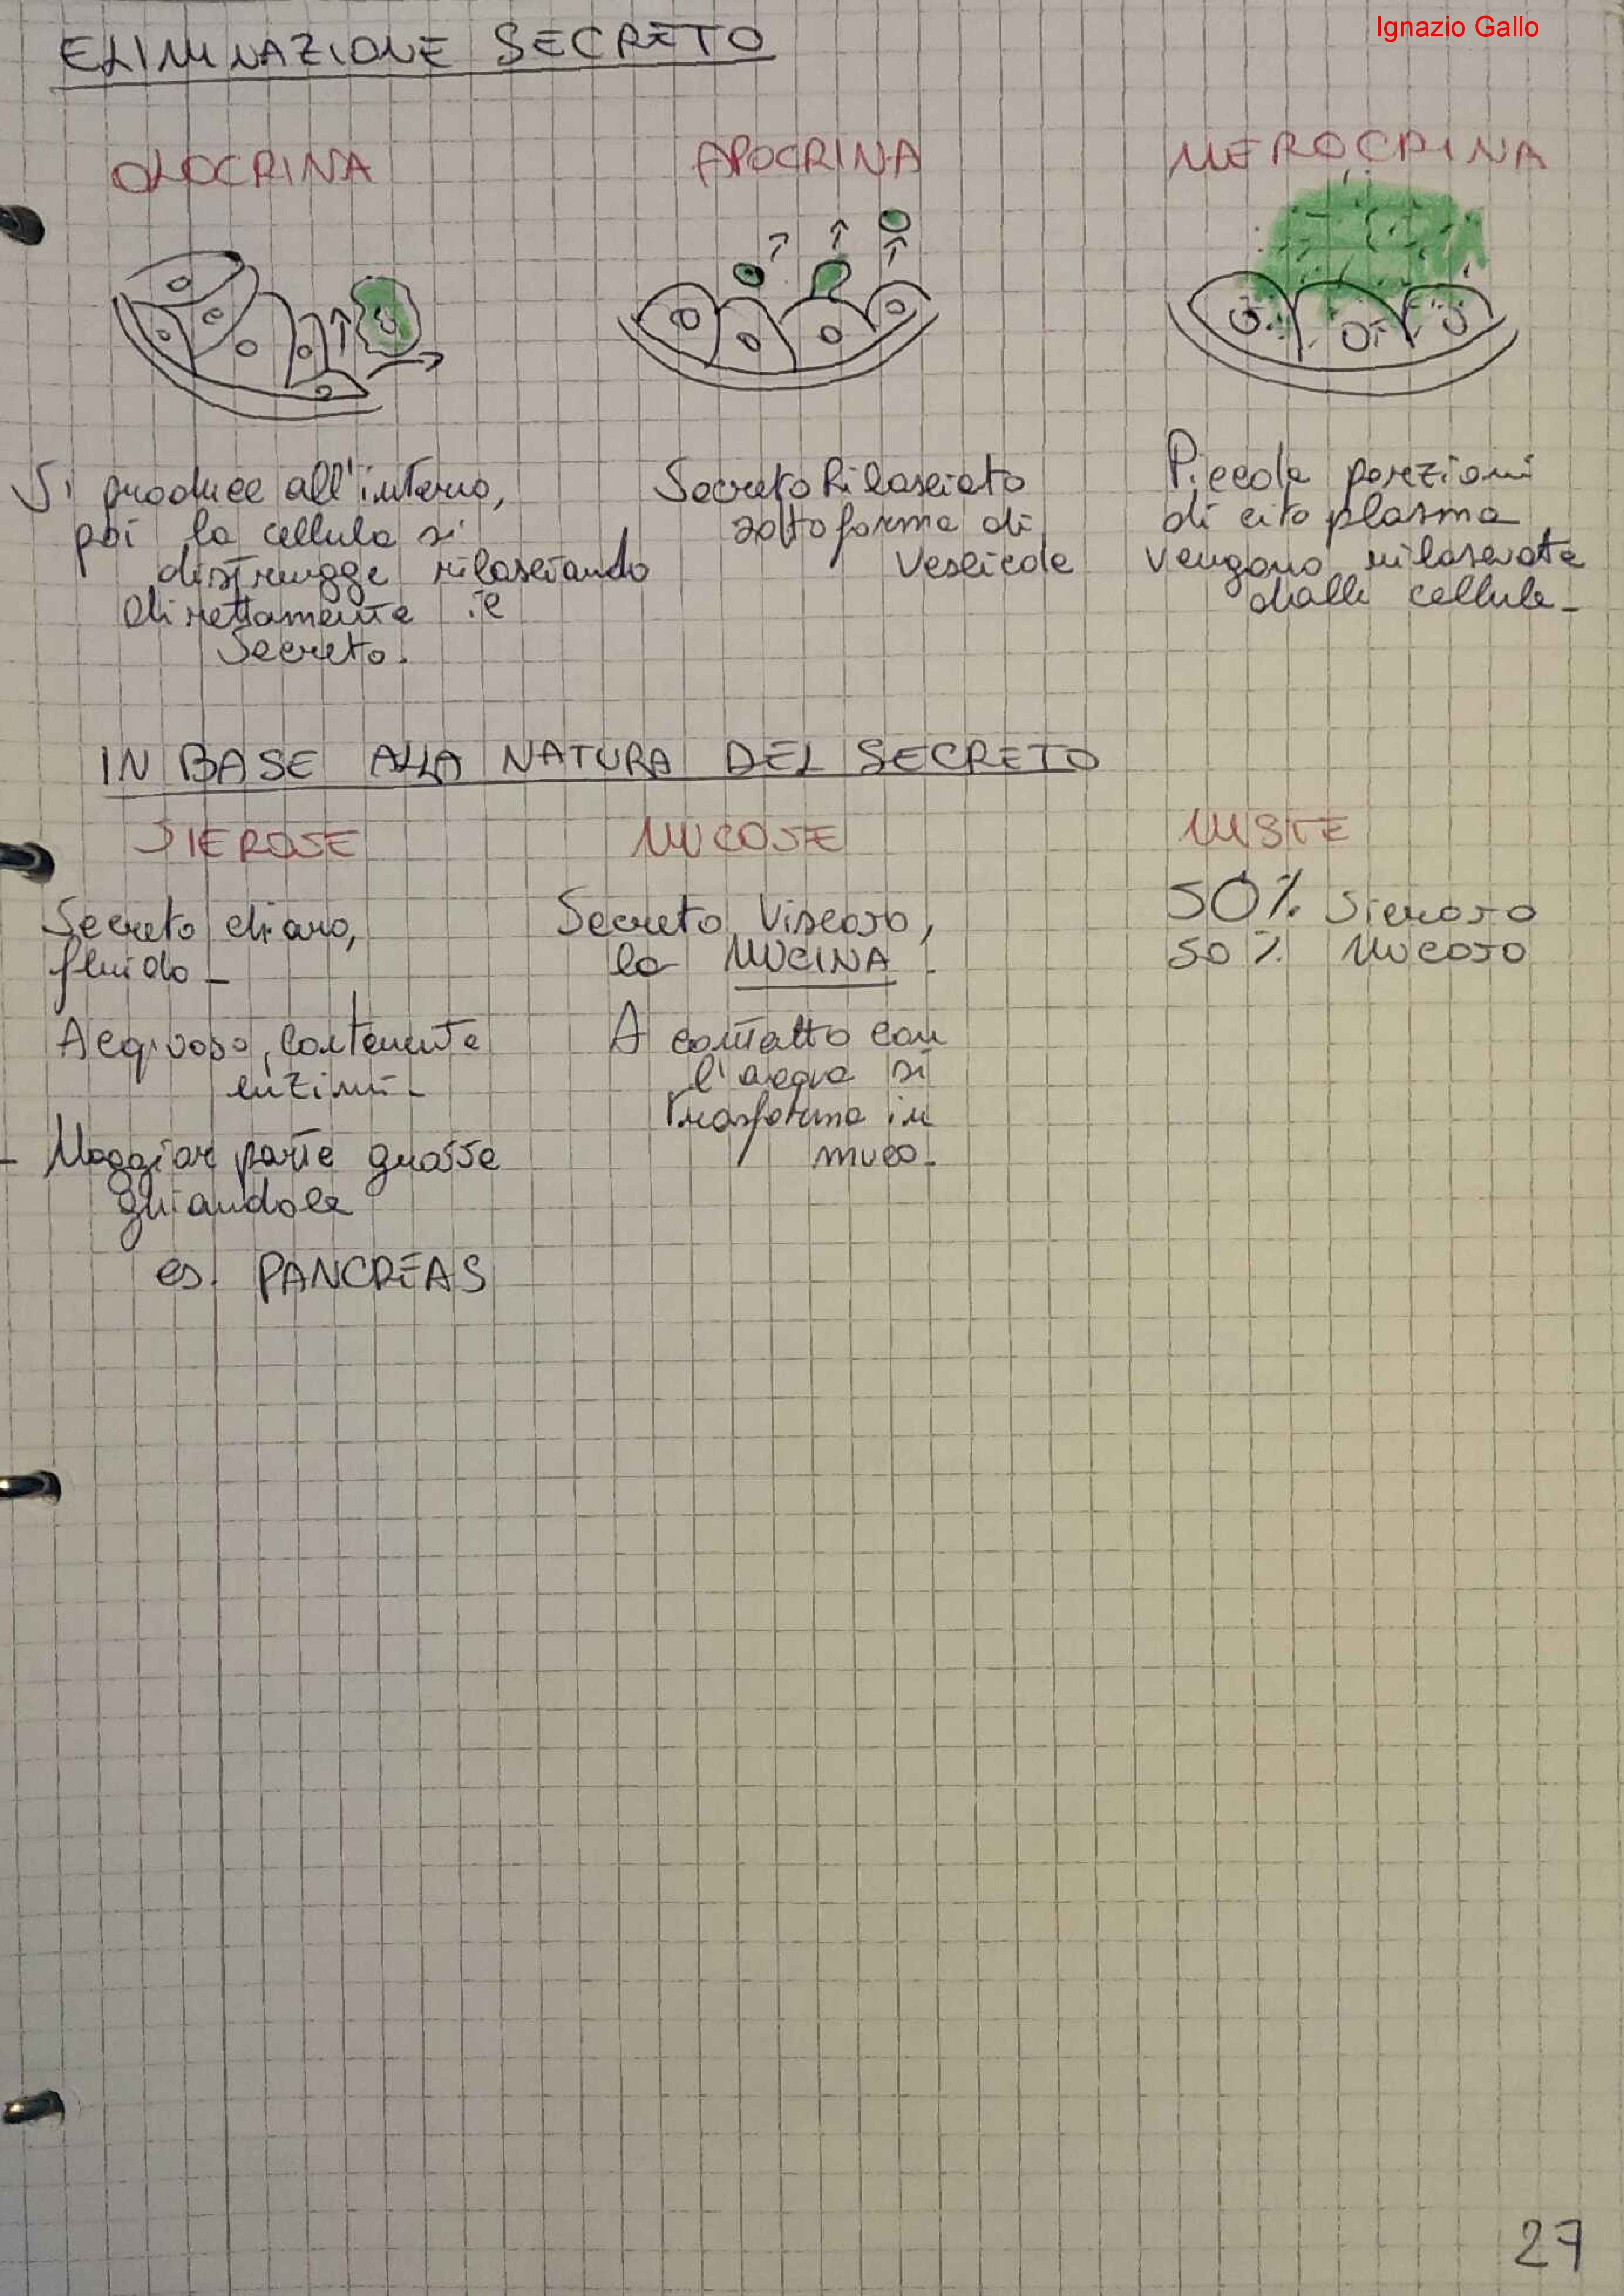 Ignazio Gallo
ELIMINAZIONE SECRETO
OLOCRINA
Si produce all'interno,
poi la cellula si
distrugge rilasciando
direttamente il
Secreto.
APOCRINA
Secreto Rilasciato
sotto forma di
Vescicole
MEROCRINA
Piccole porzioni
di citoplasma
vengono rilasciate
dalle cellule_
IN BASE ALLA NATURA DEL SECRETO
SIEROSE
Secreto chiaro,
fluido_
Acquoso, contenente
enzimi_
- Maggior parte grosse
ghiandole
es. PANCREAS
MUCOSE
Secreto Viscoso,
la MUCINA.
A contatto con
l'acqua si
Trasforma in
muco_
MISTE
50% Sieroso
50% Mucoso
27